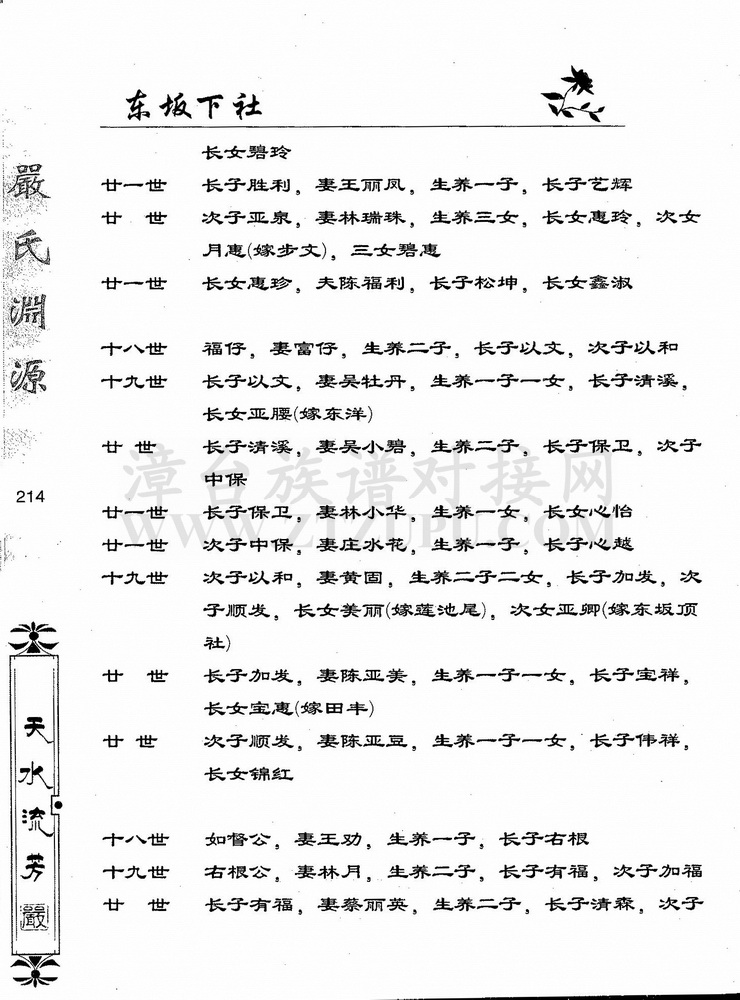 东坂下社
长女碧玲
廿一世 长子胜利，妻王丽凤，生养一子，长子艺辉
廿 世 次子亚泉，妻林瑞珠，生养三女，长女惠玲，次女
月惠(嫁步文)，三女碧惠
廿一世 长女惠珍，夫陈福利，长子松坤，长女鑫淑
十八世 福仔，妻富仔，生养二子，长子以文，次子以和
十九世 长子以文，妻吴牡丹，生养一子一女，长子清溪，
长女亚腰(嫁东洋)
廿 世 长子清溪，妻吴小碧，生养二子，长子保卫，次子
中保
廿一世 长子保卫，妻林小华，生养一女，长女心怡
廿一世 次子中保，妻庄水花，生养一子，长子心越
十九世 次子以和，妻黄固，生养二子二女，长子加发，次
子顺发，长女美丽(嫁莲池尾)，次女亚卿(嫁东坂顶
社)
廿 世 长子加发，妻陈亚美，生养一子一女，长子宝祥，
长女宝惠(嫁田丰)
廿 世 次子顺发，妻陈亚豆，生养一子一女，长子伟祥，
长女锦红
十八世 如督公，妻王劝，生养一子，长子右根
十九世 右根公，妻林月，生养二子，长子有福，次子加福
廿 世 长子有福，妻蔡丽英，生养二子，长子清森，次子
嚴氏淵源
214
天水流芳
嚴
漳台族谱对接网
WWW.ZTZUPU.COM